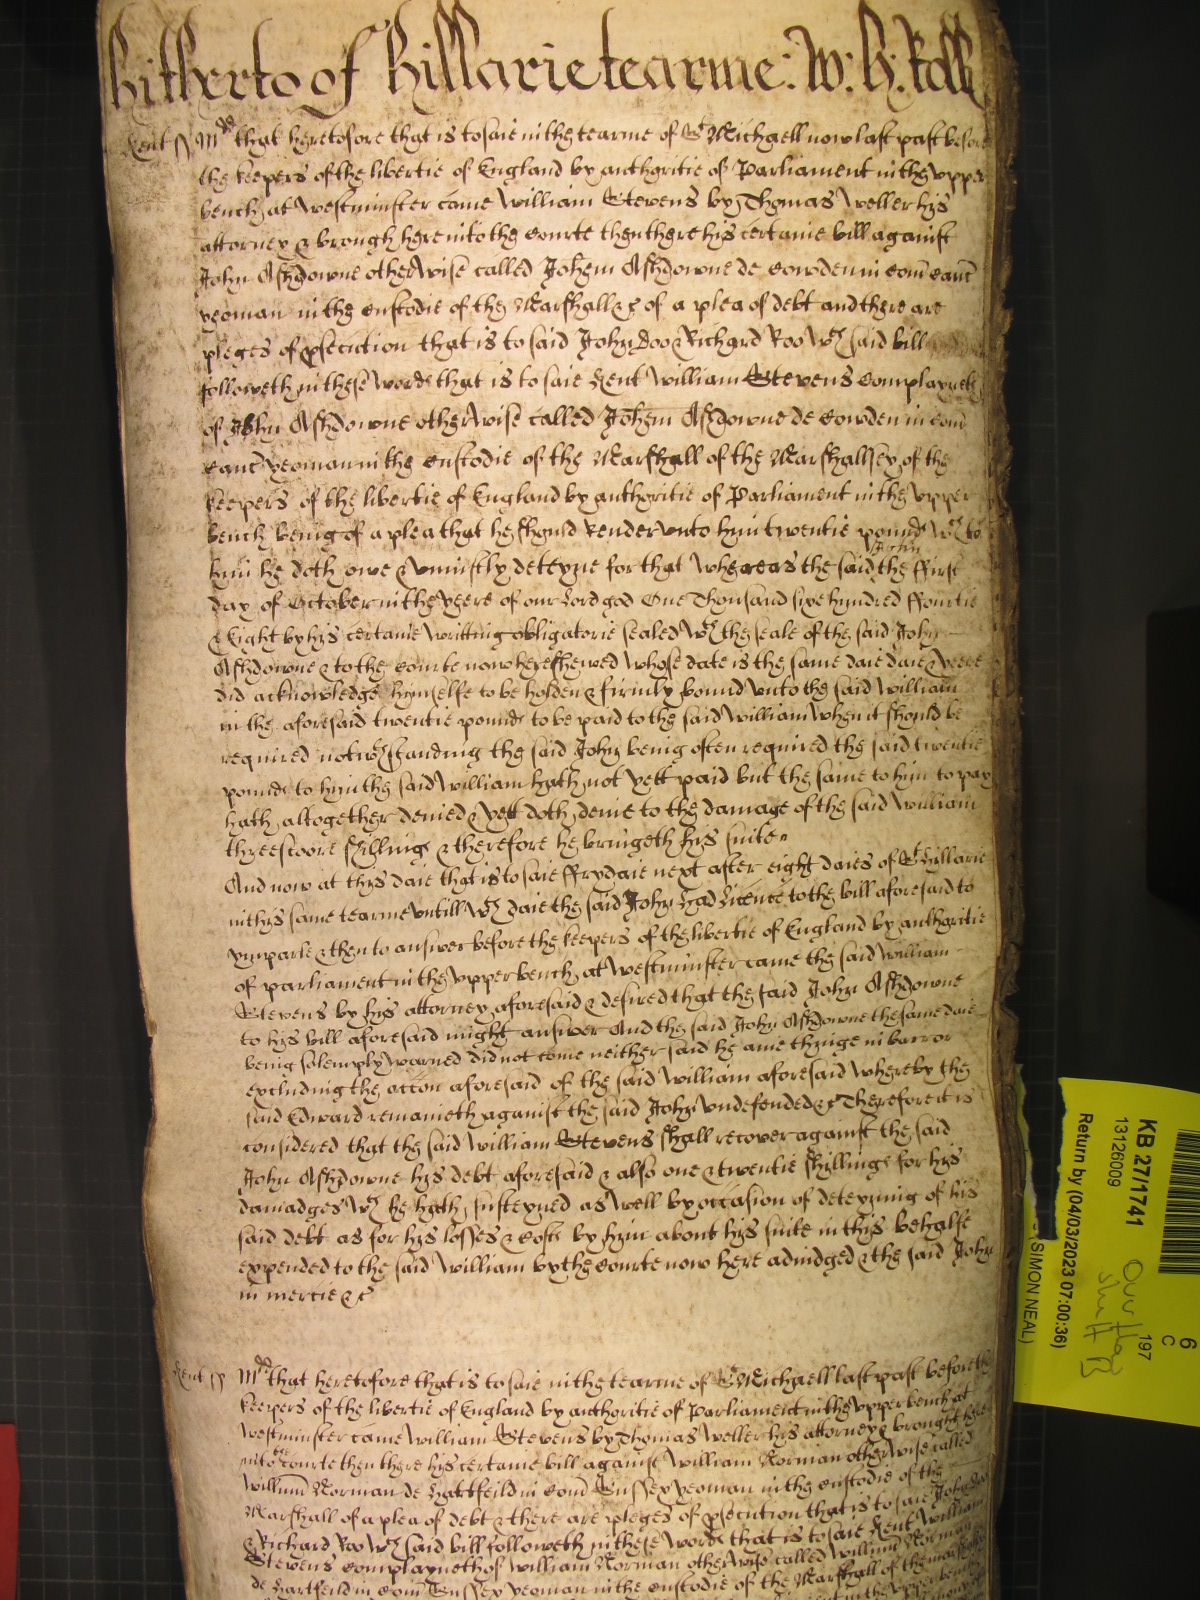 hitherto of hillarie tearme: W: H: Roll
Kent ss Mdd that heretofore that is to saie in the tearme of St Michaell now last past before
the keepers of the libertie of England by authoritie of Parliament in the upper
bench at Westminster came William Stevens by Thomas Weller his
attorney & brough here into the Courte then there his certaine bill against
John Ashdowne otherwise called Johem Ashdowne de Cowden in Com Canc
yeoman in the custodie of the Marshall &c of a plea of debt and there are
pleges of psecution that is to said John Doo & Richard Roo wch said bill
followeth in these words that is to saie Kent William Stevens Complayneth
of John Ashdowne otherwise called Johem Ashdowne de Cowden in Com
Canc yeoman in the custodie of the Marshall of the Marshallsey of the
keepers of the libertie of England by authoritie of Parliament in the upper
bench being of a plea that he should render unto him twentie pounds wch to
John
him he doth owe & uniustly deteyne for that whereas the said the ffirst
day of October in the yeere of our Lord god One Thousand sixe hundred ffourtie
& Eight by his certaine writting obligatorie sealed wth the seale of the said John
Ashdowne & to the Courte now here shewed whose date is the same daie daie & yeere
did acknowledge himselfe to be holden & firmly bound unto the said William
in the aforesaid twentie pounds to be paid to the said William when it should be
required notwthstanding the said John being often required the said twentie
pounds to him the said William hath not yett paid but the same to him to pay
hath altogether denied & yett doth denie to the damage of the said William
threescoore shillings & therefore he bringeth his suite
And now at this daie that is to saie ffrydaie next after eight daies of St Hillarie
in this same tearme untill wch daie the said John had Licence to the bill aforesaid to
ymparle & then to answer before the keepers of the libertie of England by authoritie
of parliament in the upper bench at Westminster came the said William
Stevens by his attorney aforesaid & desired that the said John Ashdowne
to his bill aforesaid might answer And the said John Ashdowne the same daie
being solemply warned did not come neither said he anie thinge in barror
excluding the accon aforesaid of the said William aforesaid whereby the
said Edward remaineth against the said John undefended &c Therefore it is
considered that the said William Stevens shall recover against the said
John Ashdowne his debt aforesaid & also one & twentie shillings for his
damadges wch he hath susteyned as well by occasion of deteyning of his
said debt as for his losses & costs by him about his suite in this behalfe
expended to the said William by the Courte now here adiudged & the said John
in mercie &c
Kent ss Mdd that heretofore that is to saie in the tearme of St Michaell last past before the
keepers of the libertie of England by authoritie of Parliament in the upper bench at
Westminster came William Stevens by Thomas Weller his attorney & brought here
into the Courte then there his certaine bill against William Norman otherwise called
Willum Norman de Hartfeild in Com Sussex yeoman in the custodie of the
Marshall of a plea of debt & there are pleges of psecution that is to saie John Doo
& Richard Roo wch said bill followeth in these words that is to saie Kent William
Stevens Complayneth of William Norman otherwise called Willum Norman
de Hartfeild in Com Sussex yeoman in the custodie of the Marshall of the
KB 27/1741
13126009
Return by (04/03/2023 07:00:36)
(SIMON NEAL)
197
C
6